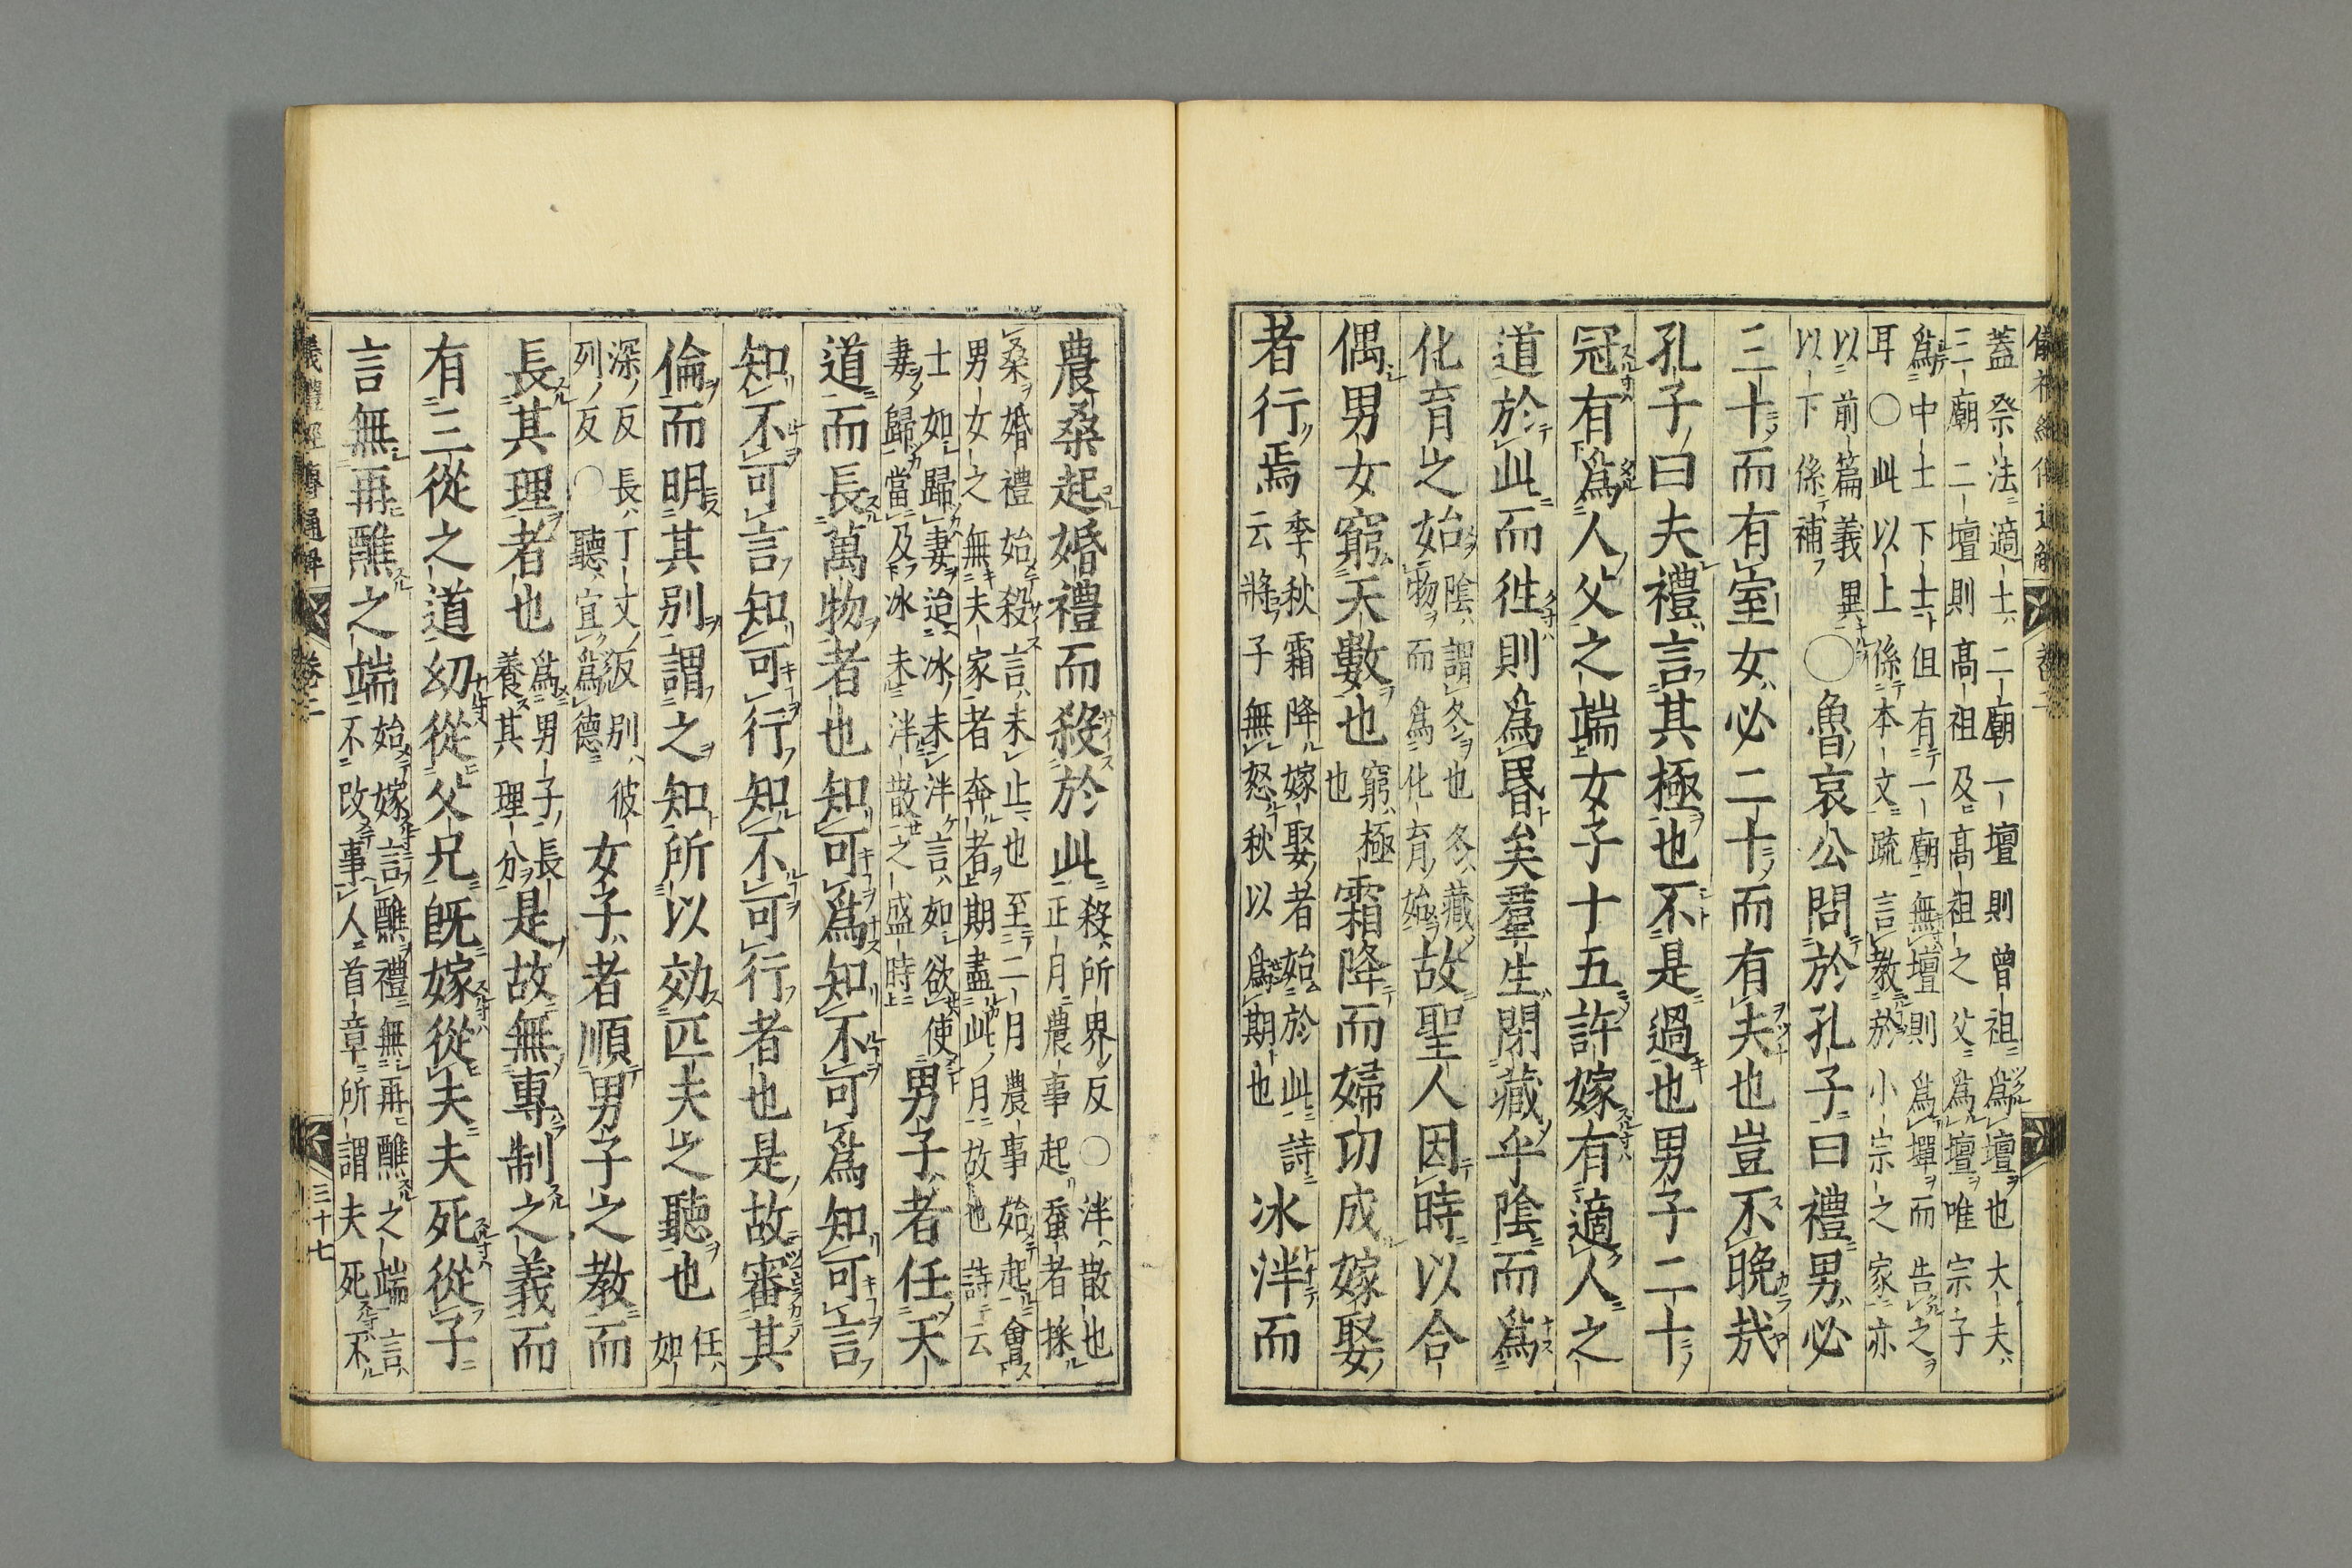 蓋祭法適士二廟一壇則曾祖爲壇也大夫
三廟二壇則髙祖及髙祖之父爲壇唯宗子
爲中士下士但有一廟無壇則爲墠而告之
耳○此以上係本文疏言教於小宗之家亦
以前篇義異
以下係補
○魯哀公問於孔子曰禮男必
三十而有室女必二十而有夫也豈不晚哉
孔子曰夫禮言其極也不是過也男子二十
冠有爲人父之端女子十五許嫁有適人之
道於此而徃則爲昬矣羣生閉藏乎陰而爲
化育之始
陰謂冬也冬藏
物而爲化育始
故聖人因時以合
偶男女窮天數也
窮極
也
霜降而婦功成嫁娶
者行焉
季秋霜降嫁娶者始於此詩
云將子無怒秋以爲期也
冰泮而
農桑起婚禮而殺於此
殺所界反○泮散也
正月農事起蚕者採
桑婚禮始殺言未止也至二月農事始起會
男女之無夫家者奔者期盡此月故也詩云
士如歸妻迨冰未泮言如欲使
妻歸當及冰未泮散之盛時
男子者任天
道而長萬物者也知可爲知不可爲知可言
知不可言知可行知不可行者也是故審其
倫而明其別謂之知所以効匹夫之聽也
任
如
深反長丁丈反別彼
列反○聽宜爲德
女子者順男子之教而
長其理者也
爲男子長
養其理分
是故無專制之義而
有三從之道幼從父兄既嫁從夫夫死從子
言無再醮之端
始嫁言醮禮無再醮之端言
不改事人首章所謂夫死不
儀禮經傳通解 卷二 三十七